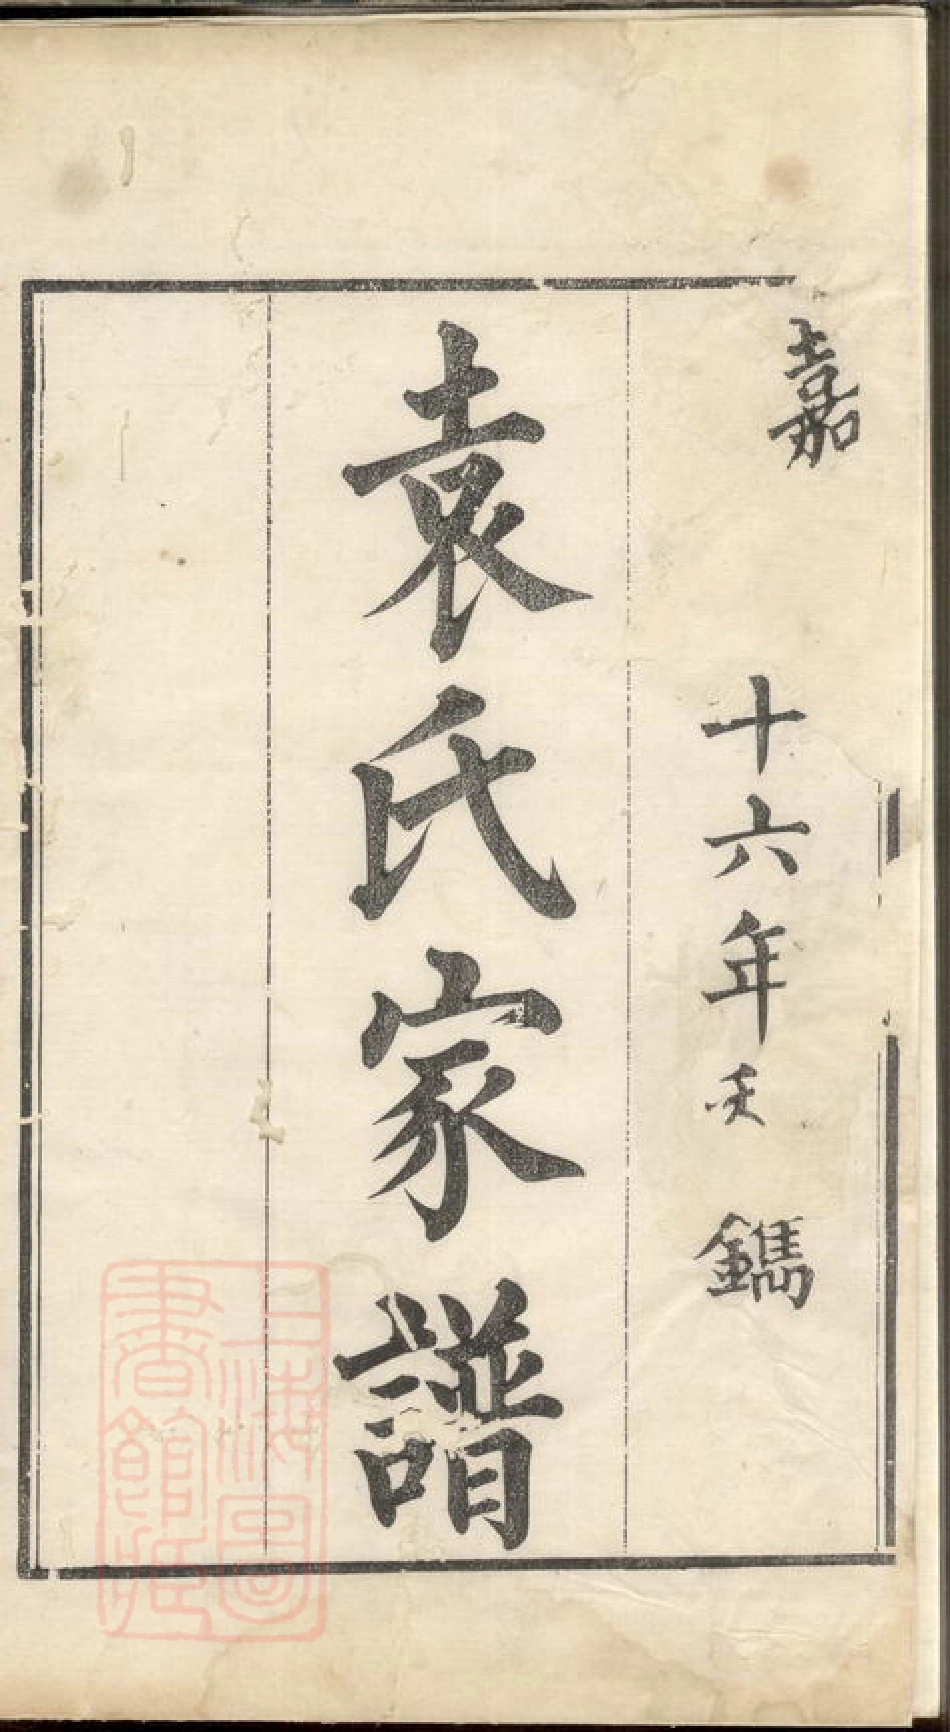 嘉 十六年 鐫
袁氏家譜
上海圖
書館藏